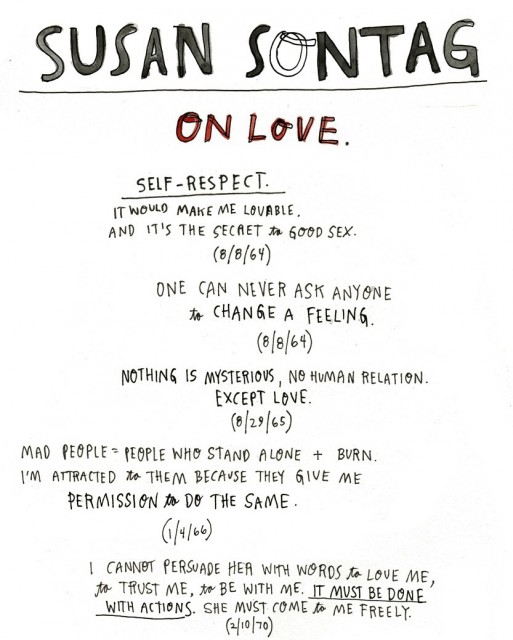 SUSAN SONTAG
ON LOVE.
SELF-RESPECT.
IT WOULD MAKE ME LOVABLE.
AND IT'S THE SECRET to GOOD SEX.
(8/8/64)
ONE CAN NEVER ASK ANYONE
to CHANGE A FEELING.
(8/8/64)
NOTHING IS MYSTERIOUS, NO HUMAN RELATION.
EXCEPT LOVE.
(8/29/65)
MAD PEOPLE = PEOPLE WHO STAND ALONE + BURN.
I'M ATTRACTED to THEM BECAUSE THEY GIVE ME
PERMISSION to DO THE SAME.
(1/4/66)
I CANNOT PERSUADE HER WITH WORDS to LOVE ME,
to TRUST ME, to BE WITH ME. IT MUST BE DONE
WITH ACTIONS. SHE MUST COME to ME FREELY.
(2/10/70)